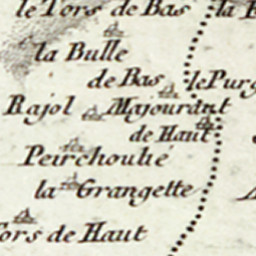 le Tors de Bas
la
la Bulle
de Bas
le Purg
Rajol
Majourant
de Haut
Peirchoulié
la Grangette
Tors de Haut